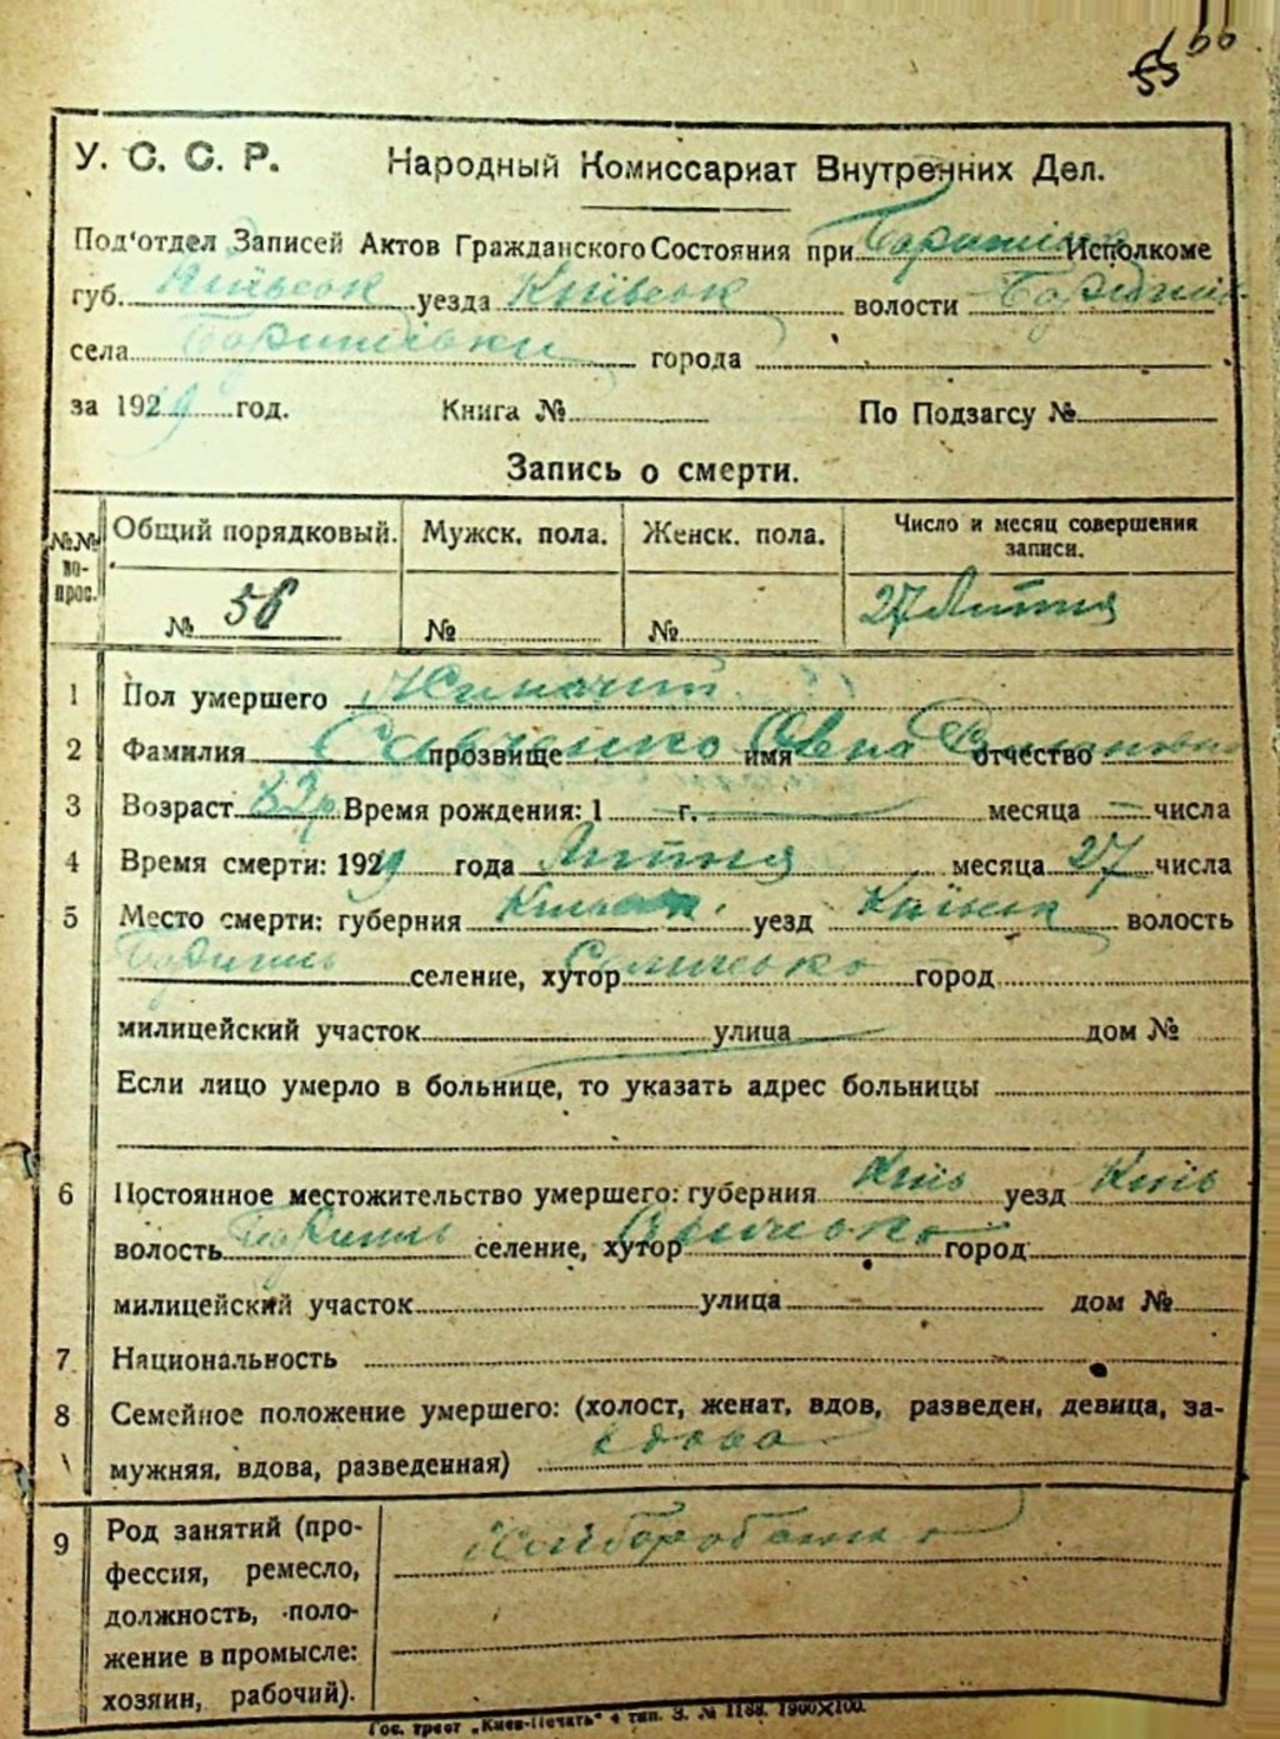 55 66
У. С. С. Р. Народный Комиссариат Внутренних Дел.
Под'отдел Записей Актов Гражданского Состояния при Исполкоме
губ. Київськ уезда Київськ волости
села города
за 192 год. Книга № По Подзагсу №
Запись о смерти.
№№ во-прос. Общий порядковый. Мужск. пола. Женск. пола. Число и месяц совершения записи.
№ 56 № № 27 Липня
1 Пол умершего Жиночий
2 Фамилия Савченко прозвище имя отчество
3 Возраст 83 р. Время рождения: 1 г. месяца — числа
4 Время смерти: 192 года Липня месяца 27 числа
5 Место смерти: губерния уезд Київськ волость
селение, хутор город
милицейский участок улица дом №
Если лицо умерло в больнице, то указать адрес больницы
6 Постоянное местожительство умершего: губерния Київ уезд Київ
волость селение, хутор город
милицейский участок улица дом №
7 Национальность
8 Семейное положение умершего: (холост, женат, вдов, разведен, девица, за-
мужняя, вдова, разведенная) вдова
9 Род занятий (про-
фессия, ремесло,
должность, поло-
жение в промысле:
хозяин, рабочий).
Хліборобство
Гос. трест „Киев-Печать" 4 тип. З. № 1188. 1900×100.